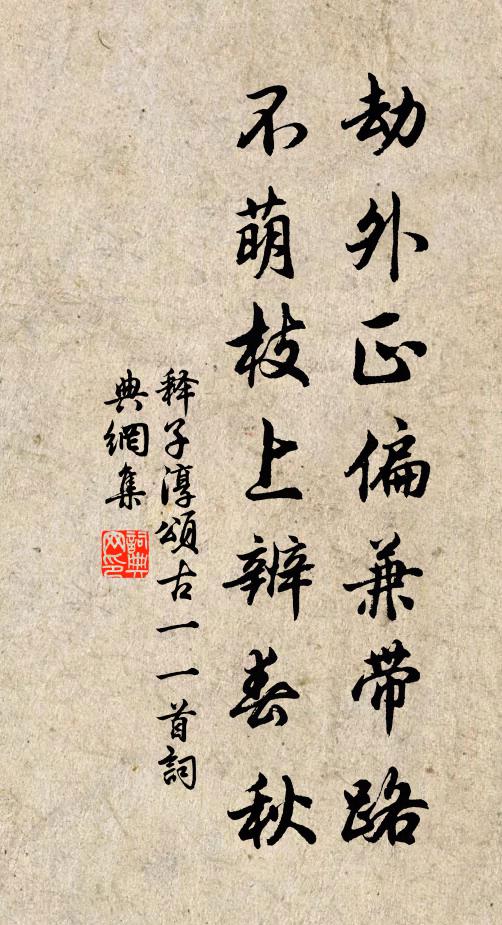 劫外正偏兼带路
不萌枝上辨春秋
释子淳頌古一一首詞
典網集
詞典網印